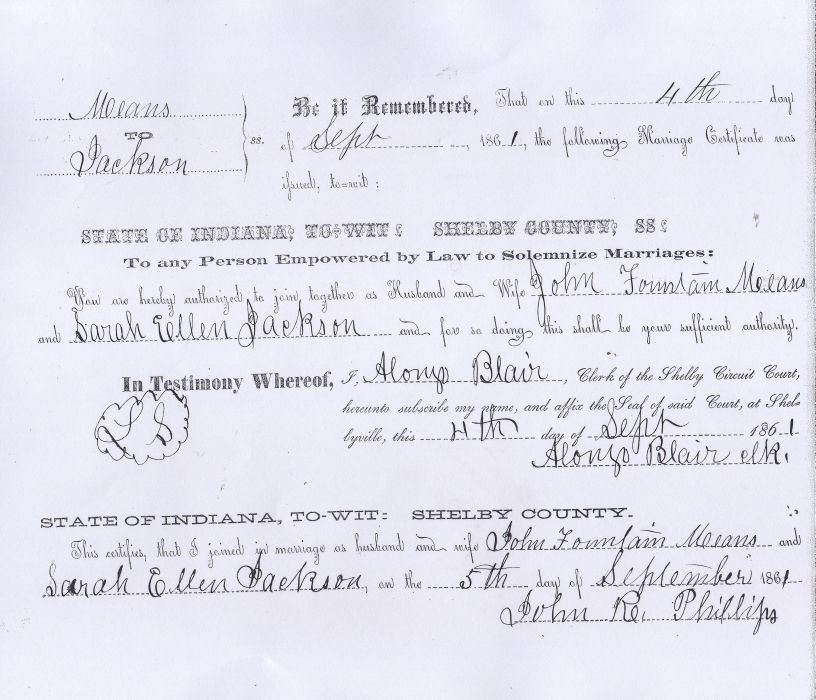 Means
TO
Jackson
ss.
Be it Remembered, That on this 4th day
of Sept, 1861, the following Marriage Certificate was
issued, to-wit:
STATE OF INDIANA, TO-WIT: SHELBY COUNTY, SS:
To any Person Empowered by Law to Solemnize Marriages:
You are hereby authorized to join together as Husband and Wife John Fountain Means
and Sarah Ellen Jackson and for so doing this shall be your sufficient authority.
In Testimony Whereof, I, Alonzo Blair, Clerk of the Shelby Circuit Court,
hereunto subscribe my name, and affix the Seal of said Court, at Shel-
L S
byville, this 4th day of Sept 1861
Alonzo Blair clk.
STATE OF INDIANA, TO-WIT: SHELBY COUNTY.
This certifies, that I joined in marriage as husband and wife John Fountain Means and
Sarah Ellen Jackson, on the 5th day of September 1861
John R. Phillips